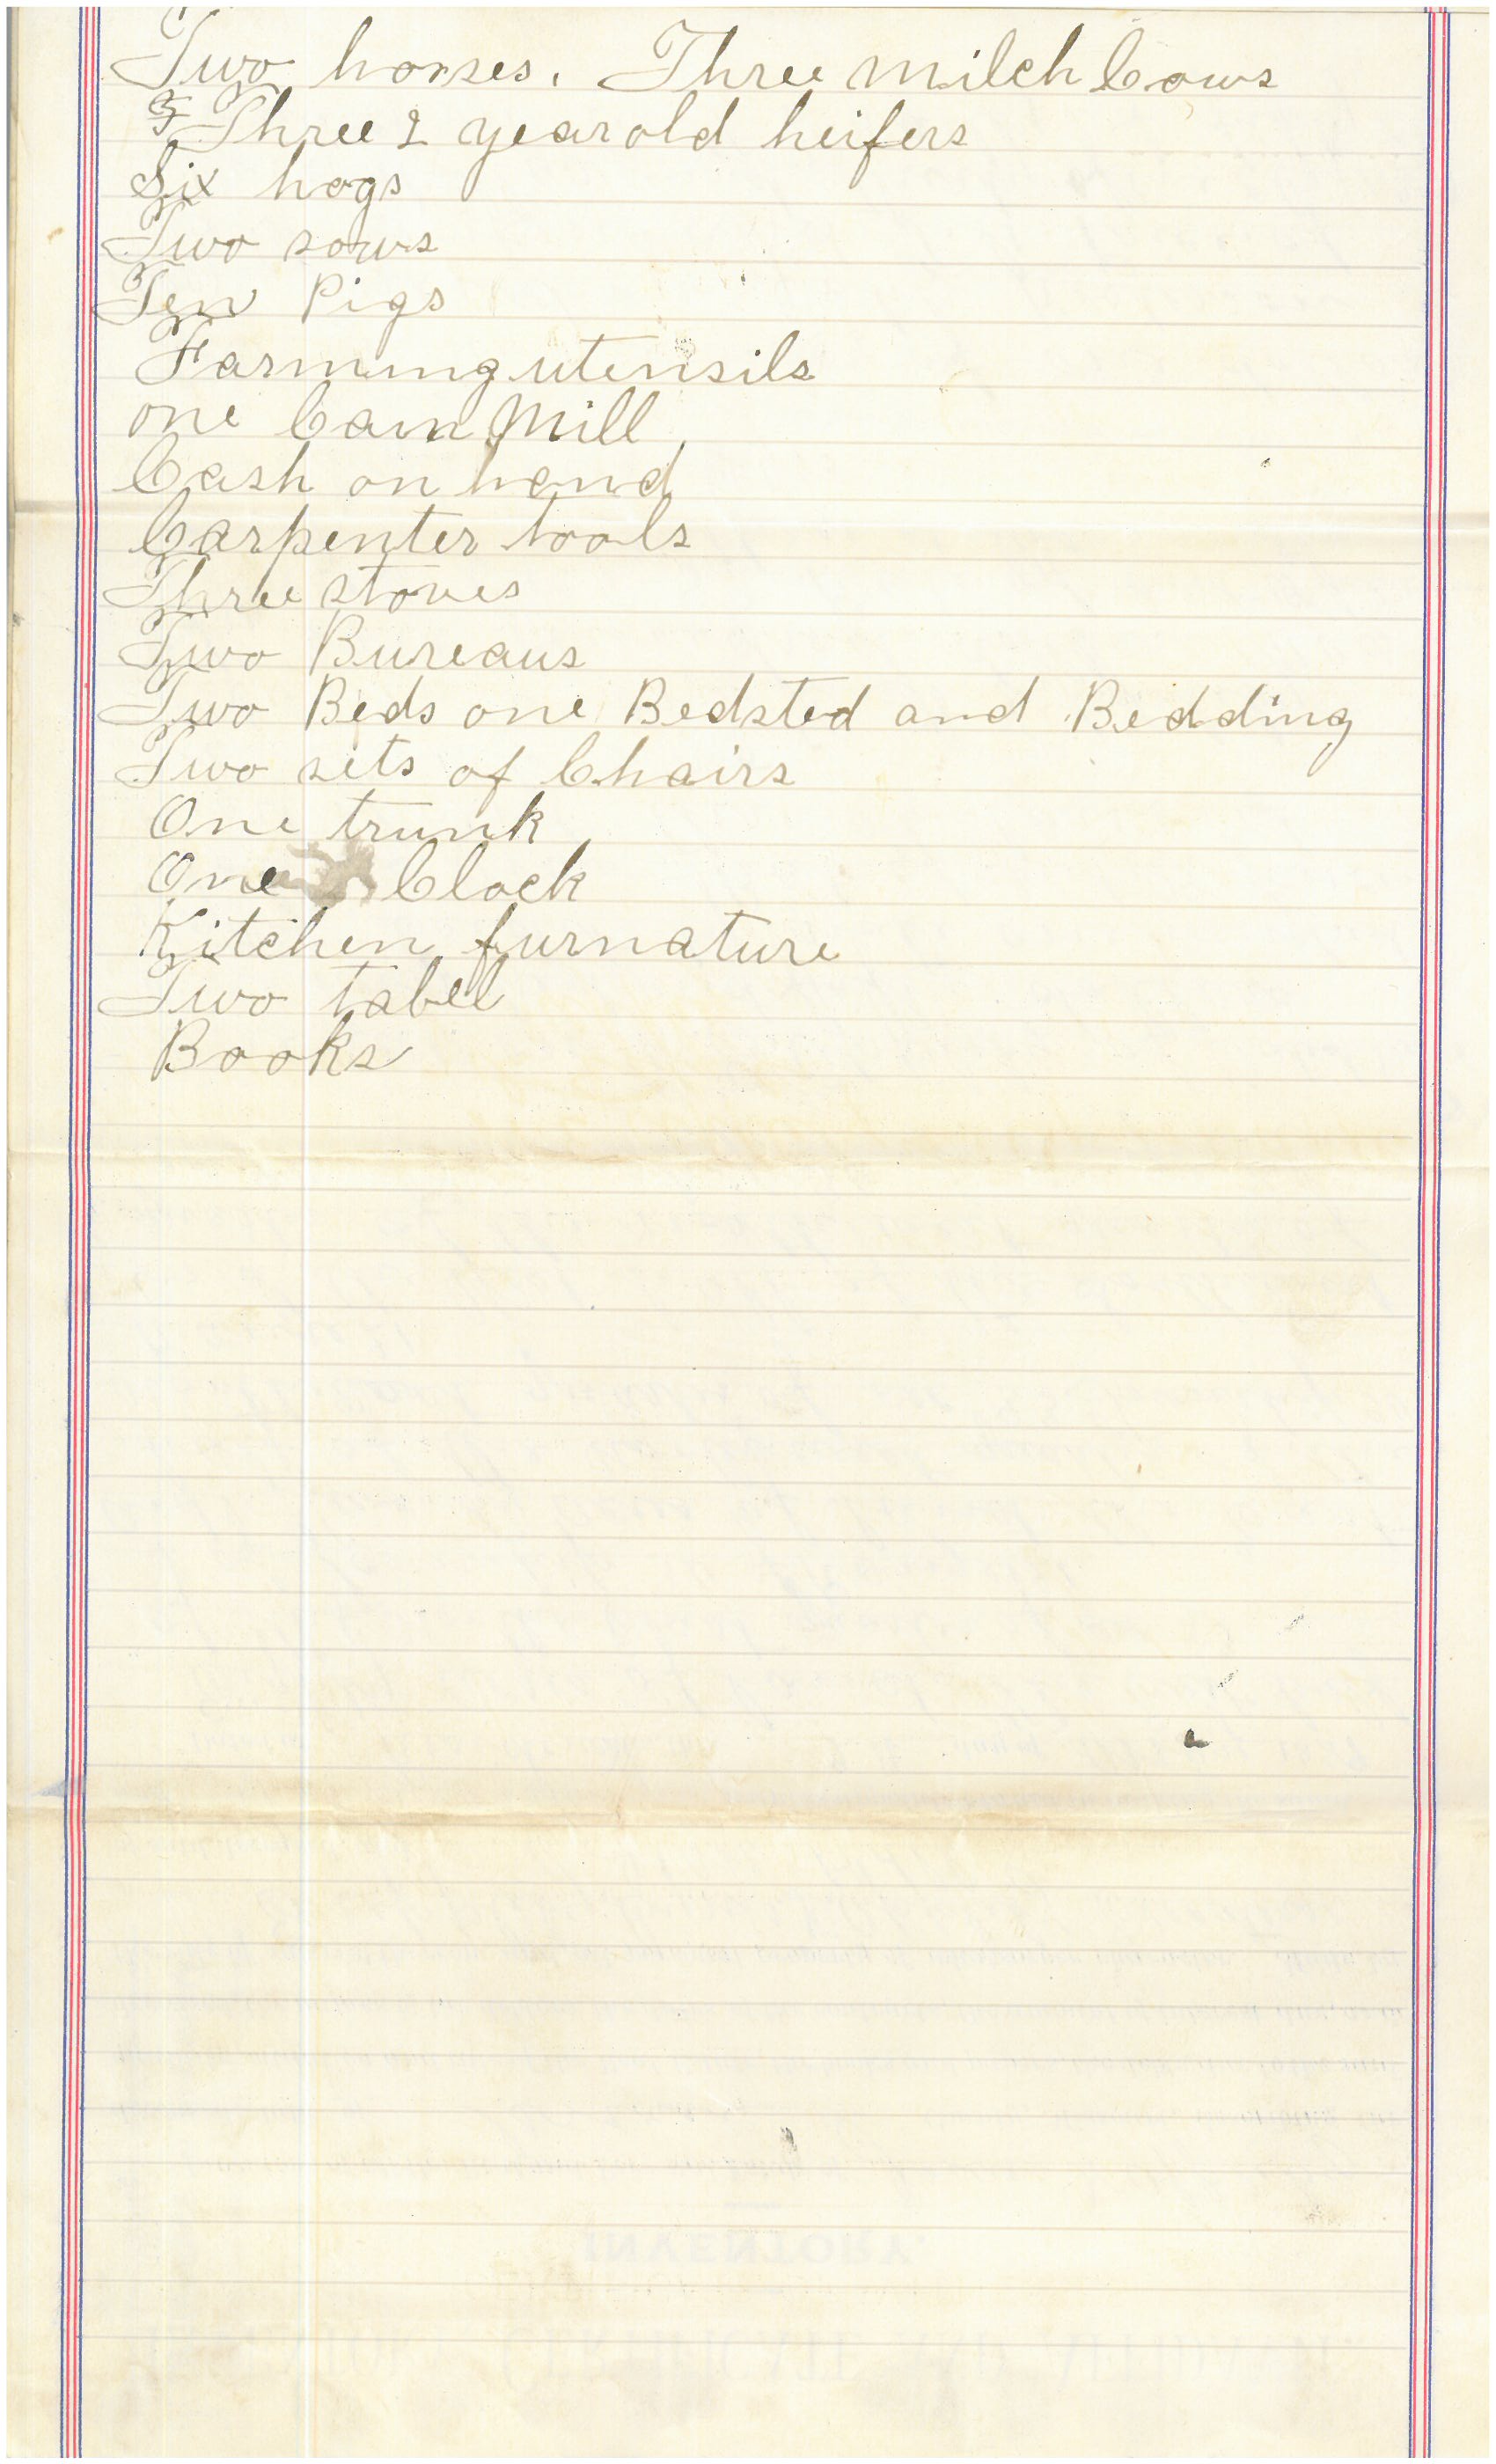 Two horses. Three milch Cows
Three 2 year old heifers
Six hogs
Two sows
Ten Pigs
Farming utensils
one Cain Mill
Cash on hand
Carpenter tools
Three stoves
Two Bureaus
Two Beds one Bedsted and Bedding
Two sets of Chairs
One trunk
One Clock
Kitchen furnature
Two tabel
Books
INVENTORY